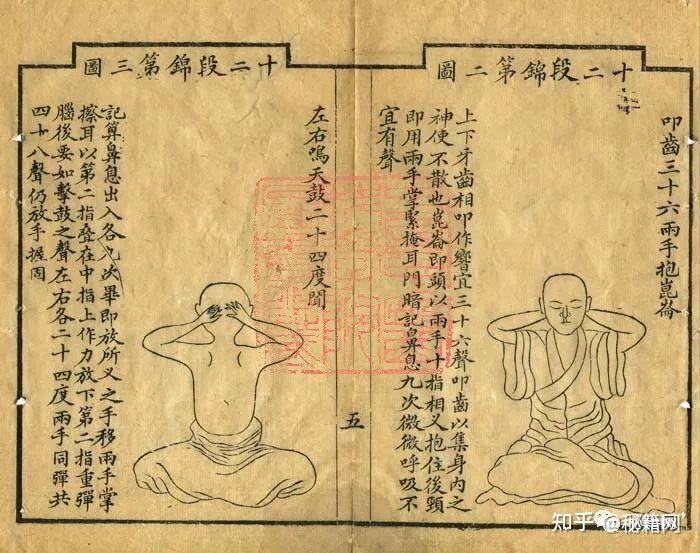 十二段錦第二圖
叩齒三十六兩手抱崑崙
上下牙齒相叩作響宜三十六聲叩齒以集身內之
神使不散也崑崙即頭以兩手十指相义抱住後頸
即用兩手掌緊掩耳門暗記鼻息九次微微呼吸不
宜有聲
五
十二段錦第三圖
左右鳴天鼓二十四度聞
記算鼻息出入各九次畢即放所义之手移兩手掌
擦耳以第二指叠在中指上作力放下第二指重彈
腦後要如擊鼓之聲左右各二十四度兩手同彈共
四十八聲仍放手握固
知乎 @秘籍网